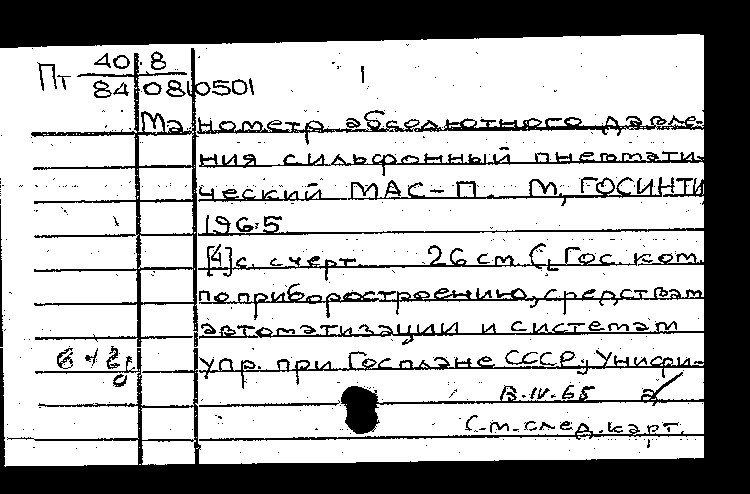 Пт 40 8 1
84 081 0501
Манометр абсолютного давле-
ния сильфонный пневмати-
ческий МАС-П. М, ГОСИНТИ
1965
[4]с. с черт. 26 см (Гос. ком.
по приборостроению, средствам
автоматизации и системам
упр. при Госплане СССР; Унифи-
В.IV.65
См. след. карт.